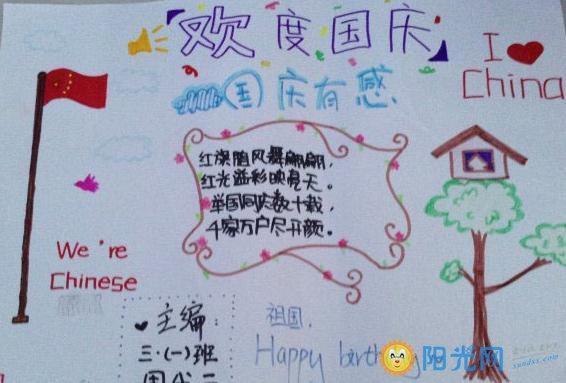 欢度国庆
I ❤ China
国庆有感
红旗随风舞翩翩，
红光溢彩映亮天。
举国同庆数十载，
千家万户尽开颜。
We're
Chinese
主编：
三·(一)班
祖国，
Happy birthday
阳光网
sundxs.com